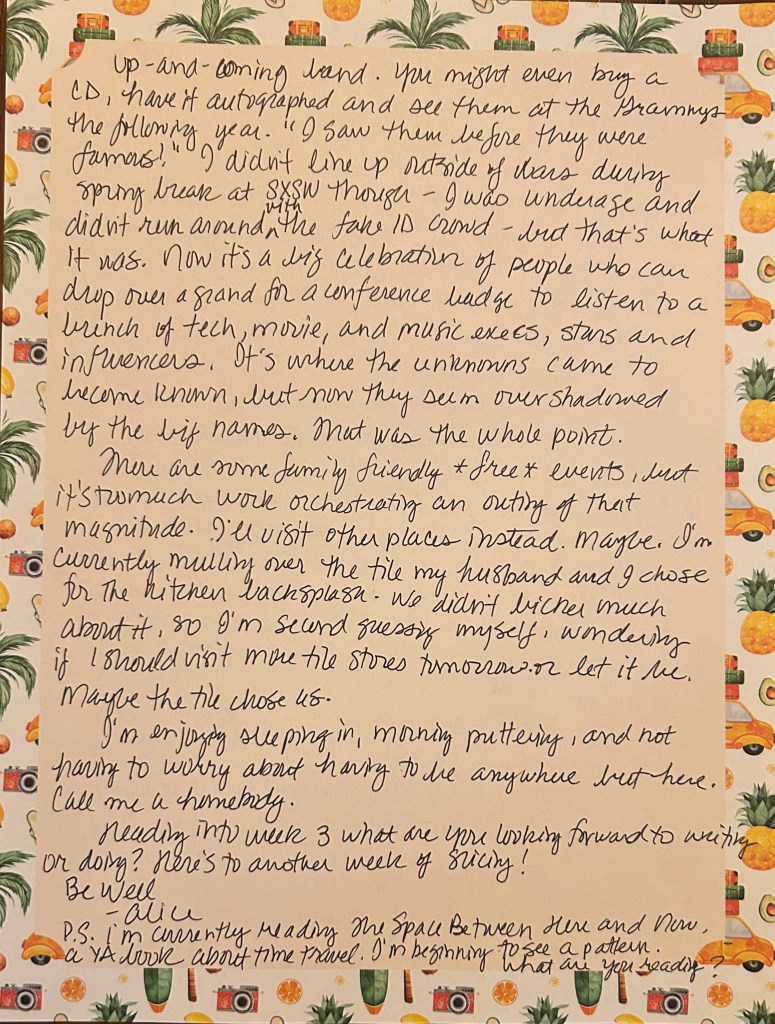 up-and-coming band. You might even buy a
CD, have it autographed and see them at the Grammys
the following year. "I saw them before they were
famous!" I didn't line up outside of bars during
spring break at SXSW though - I was underage and
didn't run around with the fake ID crowd - but that's what
it was. Now it's a big celebration of people who can
drop over a grand for a conference badge to listen to a
bunch of tech, movie, and music execs, stars and
influencers. It's where the unknowns came to
become known, but now they seem overshadowed
by the big names. That was the whole point.
There are some family friendly *free* events, but
it's too much work orchestrating an outing of that
magnitude. I'll visit other places instead. Maybe. I'm
currently mulling over the tile my husband and I chose
for the kitchen backsplash. We didn't bicker much
about it, so I'm second guessing myself, wondering
if I should visit more tile stores tomorrow or let it be.
Maybe the tile chose us.
I'm enjoying sleeping in, morning puttering, and not
having to worry about having to be anywhere but here.
Call me a homebody.
Heading into week 3 what are you looking forward to writing
or doing? Here's to another week of slicing!
Be Well
- Alice
P.S. I'm currently reading The Space Between Here and Now,
a YA book about time travel. I'm beginning to see a pattern.
What are you reading?